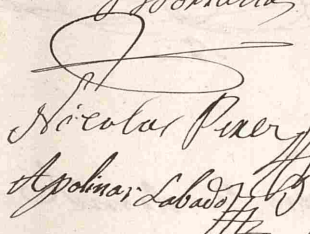 Nicolas Perer
Apolinar Labado